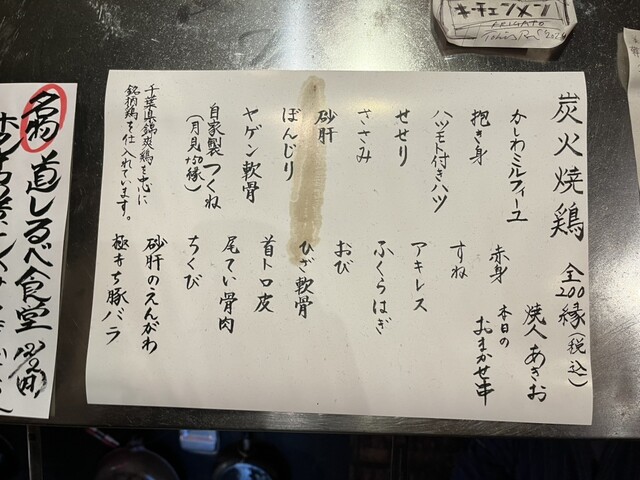 キーチェンメン
ARIGATO
炭火焼鶏 全200縁(税込)
焼人 あきお
本日の
おまかせ串
かしわミルフィーユ
赤身
抱き身
すね
ハツモト付きハツ
アキレス
せせり
ふくらはぎ
ささみ
おび
砂肝
ひざ軟骨
ぼんじり
首トロ皮
ヤゲン軟骨
尾てい骨肉
自家製つくね
(月見+50縁)
ちくび
砂肝のえんがわ
極きち豚バラ
千葉県錦炭鶏を中心に
銘柄鶏を仕入れています。
道しるべ食堂